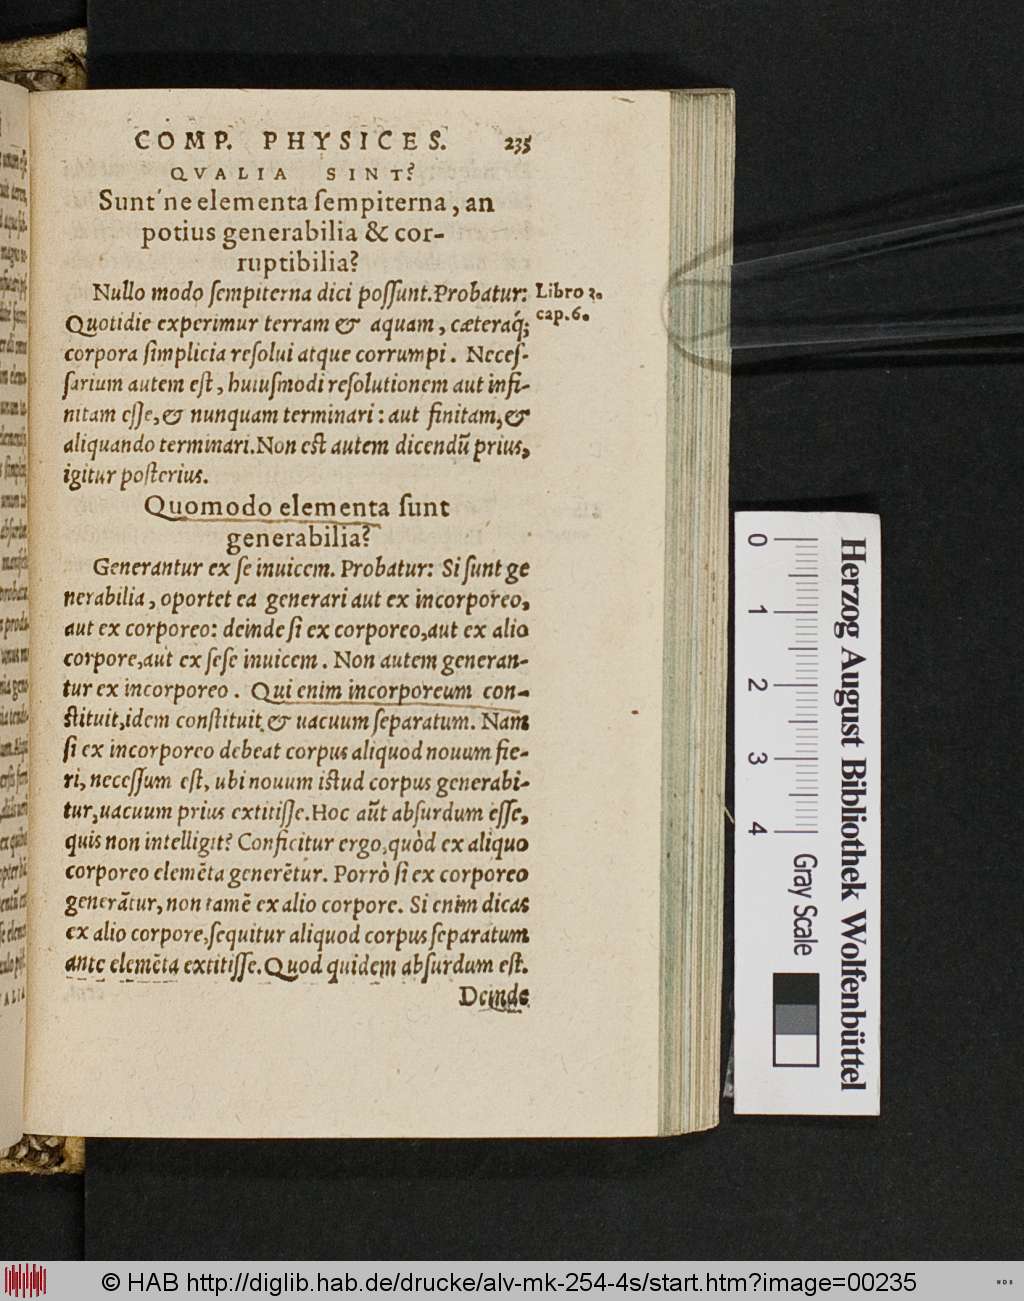 COMP. PHYSICES. 235
QVALIA SINT?
Sunt'ne elementa sempiterna, an
potius generabilia & cor-
ruptibilia?
Nullo modo sempiterna dici possunt. Probatur:
Libro 3.
cap. 6.
Quotidie experimur terram & aquam, cæteraq́;
corpora simplicia resolui atque corrumpi. Neces-
sarium autem est, huiusmodi resolutionem aut infi-
nitam esse, & nunquam terminari: aut finitam, &
aliquando terminari. Non est autem dicendũ prius,
igitur posterius.
Quomodo elementa sunt
generabilia?
Generantur ex se inuicem. Probatur: Si sunt ge
nerabilia, oportet ea generari aut ex incorporeo,
aut ex corporeo: deinde si ex corporeo, aut ex alio
corpore, aut ex sese inuicem. Non autem generan-
tur ex incorporeo. Qui enim incorporeum con-
stituit, idem constituit & uacuum separatum. Nam
si ex incorporeo debeat corpus aliquod nouum fie-
ri, necessum est, ubi nouum istud corpus generabi-
tur, uacuum prius extitisse. Hoc aũt absurdum esse,
quis non intelligit? Conficitur ergo, quòd ex aliquo
corporeo elemẽta generẽtur. Porrò si ex corporeo
generãtur, non tamẽ ex alio corpore. Si enim dicas
ex alio corpore, sequitur aliquod corpus separatum
ante elemẽta extitisse. Quod quidem absurdum est.
Deinde
0 1 2 3 4 Gray Scale
Herzog August Bibliothek Wolfenbüttel
© HAB http://diglib.hab.de/drucke/alv-mk-254-4s/start.htm?image=00235